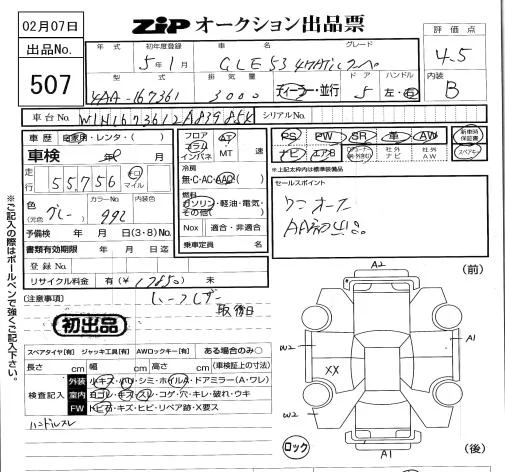 02月07日
ZiP オークション出品票
出品No.
507
年式 初年度登録 車名 グレード
5年1月 GLE53 4マチック
評価点
4.5
型式 排気量 ドア ハンドル
4AA-167361 3000 ディーラー・並行 5 左・右
内装
B
車台No. W1N1673612A83985K シリアルNo.
車歴 自家用・レンタ・( )
車検 年 月
走行 55,756 キロ マイル
色 (元色) グレー カラーNo. 992 内装色
予備検 年 月 日(3・8)No.
書類有効期限 年 月 日迄
登録No.
リサイクル料金 有(¥17850) 未
フロア コラム インパネ AT MT 速
冷房 無・C・AC・AAC
燃料 ガソリン・軽油・電気・その他( )
Nox 適合・非適合
乗車定員 名
PS PW SR 革 AW
ナビ エアB 社外ナビ 社外AW
新車時保証書
スペアキー
*上記太枠内は標準装備品
セールスポイント
ワンオーナー
AA初出品
※ご記入の際はボールペンで強くご記入下さい。
(注意事項)
取後日
初出品
スペアタイヤ[有] ジャッキ工具[有] AWロックキー[有] ある場合のみ○
長さ cm 幅 cm 高さ cm (車検証上の寸法)
検査記入
外装 小キズ・凹・シミ・ホイルA・ドアミラー(A・ワレ)
室内 ヨゴレ・キズ・スレ・コゲ・穴・キレ・破れ・ウキ
FW トビ石・キズ・ヒビ・リペア跡・X要ス
ハンドルスレ
A2
(前)
W2
A1
XX
W2
ロック
A1
(後)